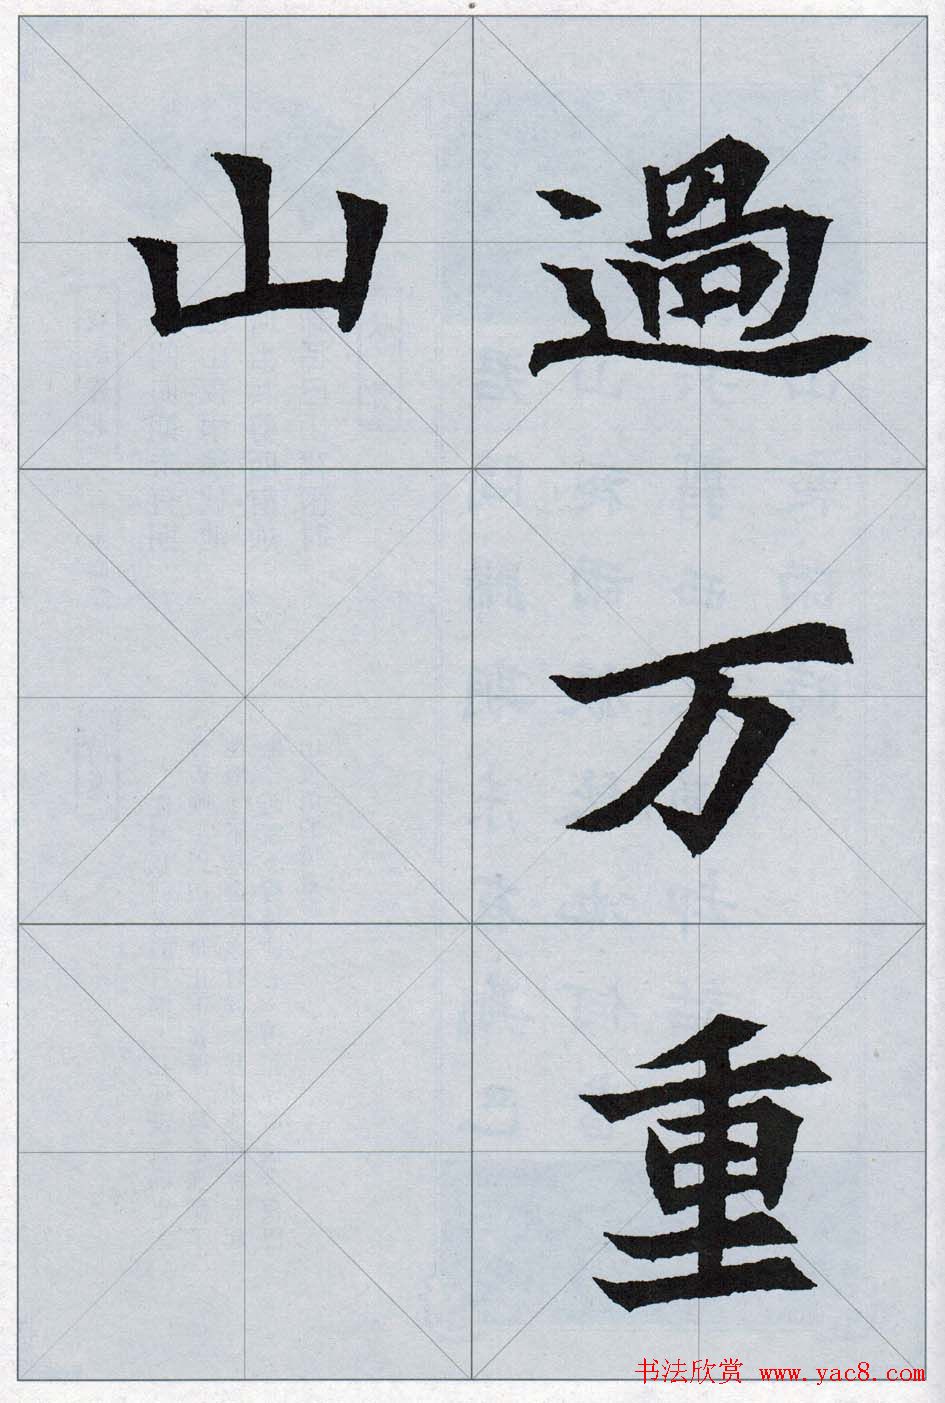 過万重
山
书法欣赏 www.yac8.com